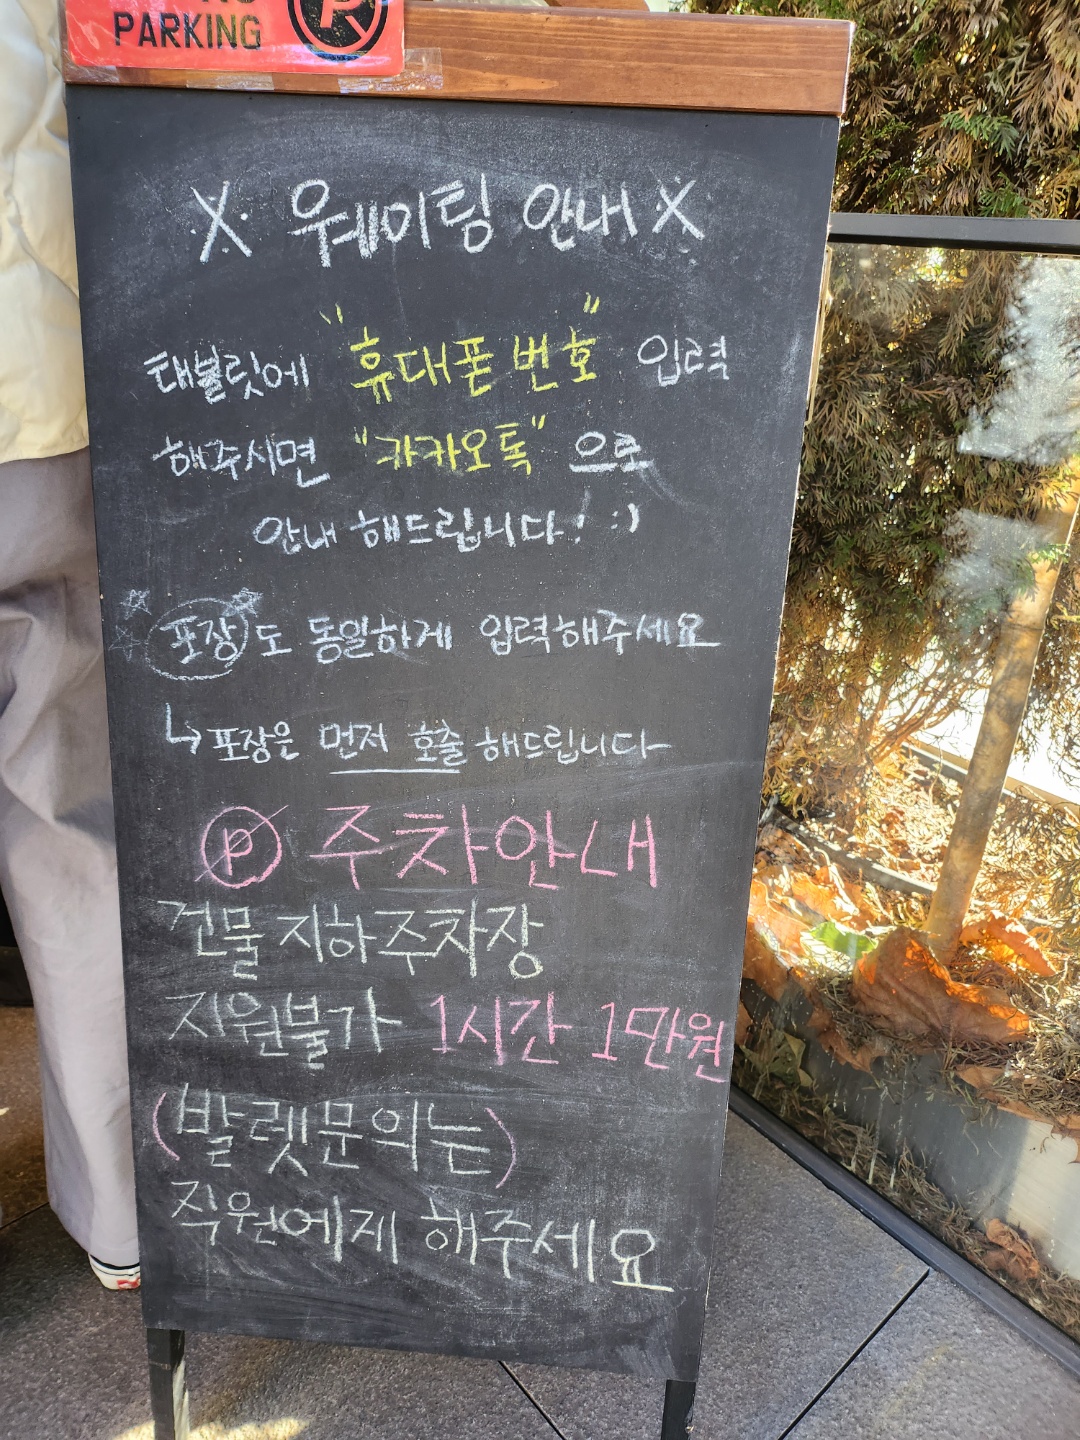 PARKING
※ 웨이팅 안내 ※
태블릿에 "휴대폰 번호" 입력
해주시면 "카카오톡" 으로
안내 해드립니다! :)
포장도 동일하게 입력해주세요
↳ 포장은 먼저 호출 해드립니다
Ⓟ 주차안내
건물 지하주차장
지원불가 1시간 1만원
(발렛문의는)
직원에게 해주세요